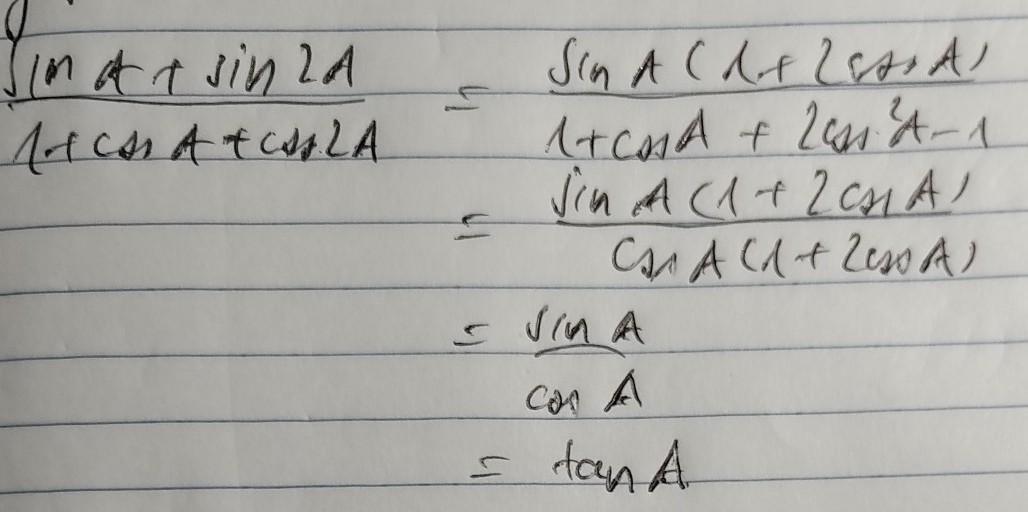 (sin A + sin 2A)/(1 + cos A + cos 2A) = (sin A (1 + 2 cos A))/(1 + cos A + 2 cos²A - 1)
= (sin A (1 + 2 cos A))/(cos A (1 + 2 cos A))
= (sin A)/(cos A)
= tan A